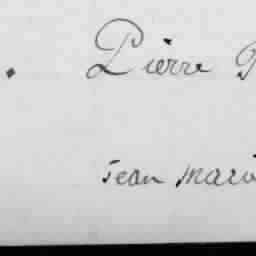 Pierre
Jean Marie